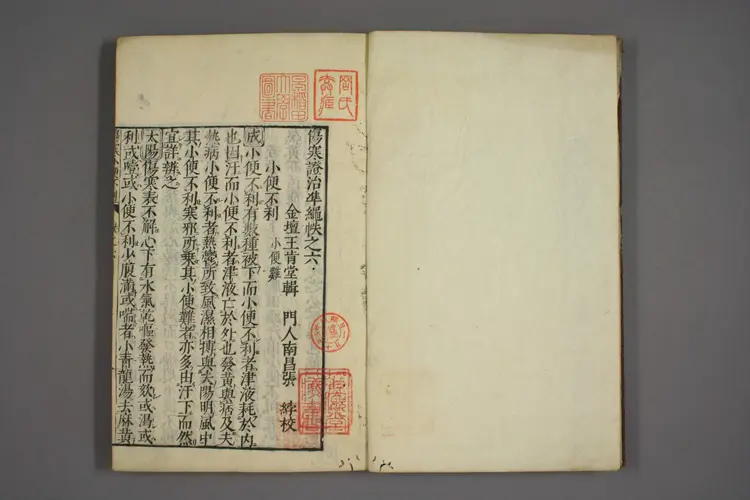 傷寒證治準繩帙之六
金壇王肯堂輯 門人南昌張 綍校
小便不利 小便難
成小便不利有數種被下而小便不利者津液耗於內
也因汗而小便不利者津液亡於外也發黃與痞及夫
熱病小便不利者熱鬱所致風濕相搏與夫陽明風中
其小便不利寒邪所乘其小便難者亦多由汗下而然
宜詳辨之
太陽傷寒表不解心下有水氣乾嘔發熱而欬或渴或
利或噎或小便不利少腹滿或喘者小青龍湯去麻黃